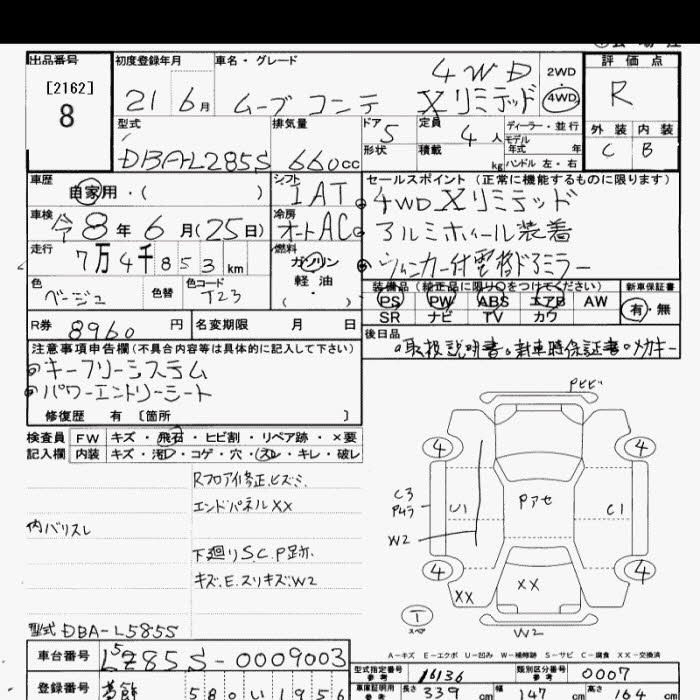 出品番号
[2162]
8
初度登録年月
21 6月
車名・グレード
4WD
ムーブコンテ Xリミテッド
2WD
・
4WD
評価点
R
外装 内装
C B
型式
DBA-L285S
排気量
660cc
ドア
5
形状
定員
4人
積載
kg
ディーラー・並行
モデル
年式 年
ハンドル 左・右
車歴
自家用・( )
シフト
IAT
車検
令8年6月(25日)
冷房
オートAC
走行
7万4千853km
燃料
ガソリン
軽油
( ・ )
色
ベージュ
色替
色コード
T23
セールスポイント (正常に機能するものに限ります)
4WD Xリミテッド
アルミホイール装着
ウィンカー付電格ドアミラー
装備品 (純正品に限り○をつけてください)
PS PW ABS エアB AW
SR ナビ TV カワ
新車保証書
有・無
R券
8960円
名変期限 月 日
後日品
取扱説明書 新車時保証書 メカキー
注意事項申告欄(不具合内容等は具体的に記入して下さい)
キーフリーシステム
パワーエントリーシート
修復歴 有 〔箇所 〕
検査員 FW キズ・飛石・ヒビ割・リペア跡・×要
記入欄 内装 キズ・汚レ・コゲ・穴・スレ・キレ・破レ
Rフロア修正、ヒズミ、
エンドパネルXX
内バリスレ
下廻りS.C.P跡、
キズ.E.スリキズ:W2
型式 DBA-L585S
Pビビ
4
4
C3
Pムラ
U1
Pアセ
C1
W2
4
4
XX
XX
T
スペア
W2
A-キズ E-エクボ U-凹み W-補修跡 S-サビ C-腐食 XX-交換済
車台番号
5
L285S-0009003
型式指定番号
参考
16136
類別区分番号
参考
0007
登録番号
580い1956
車庫証明用
参考
長さ
339cm
幅
147cm
高さ
164cm